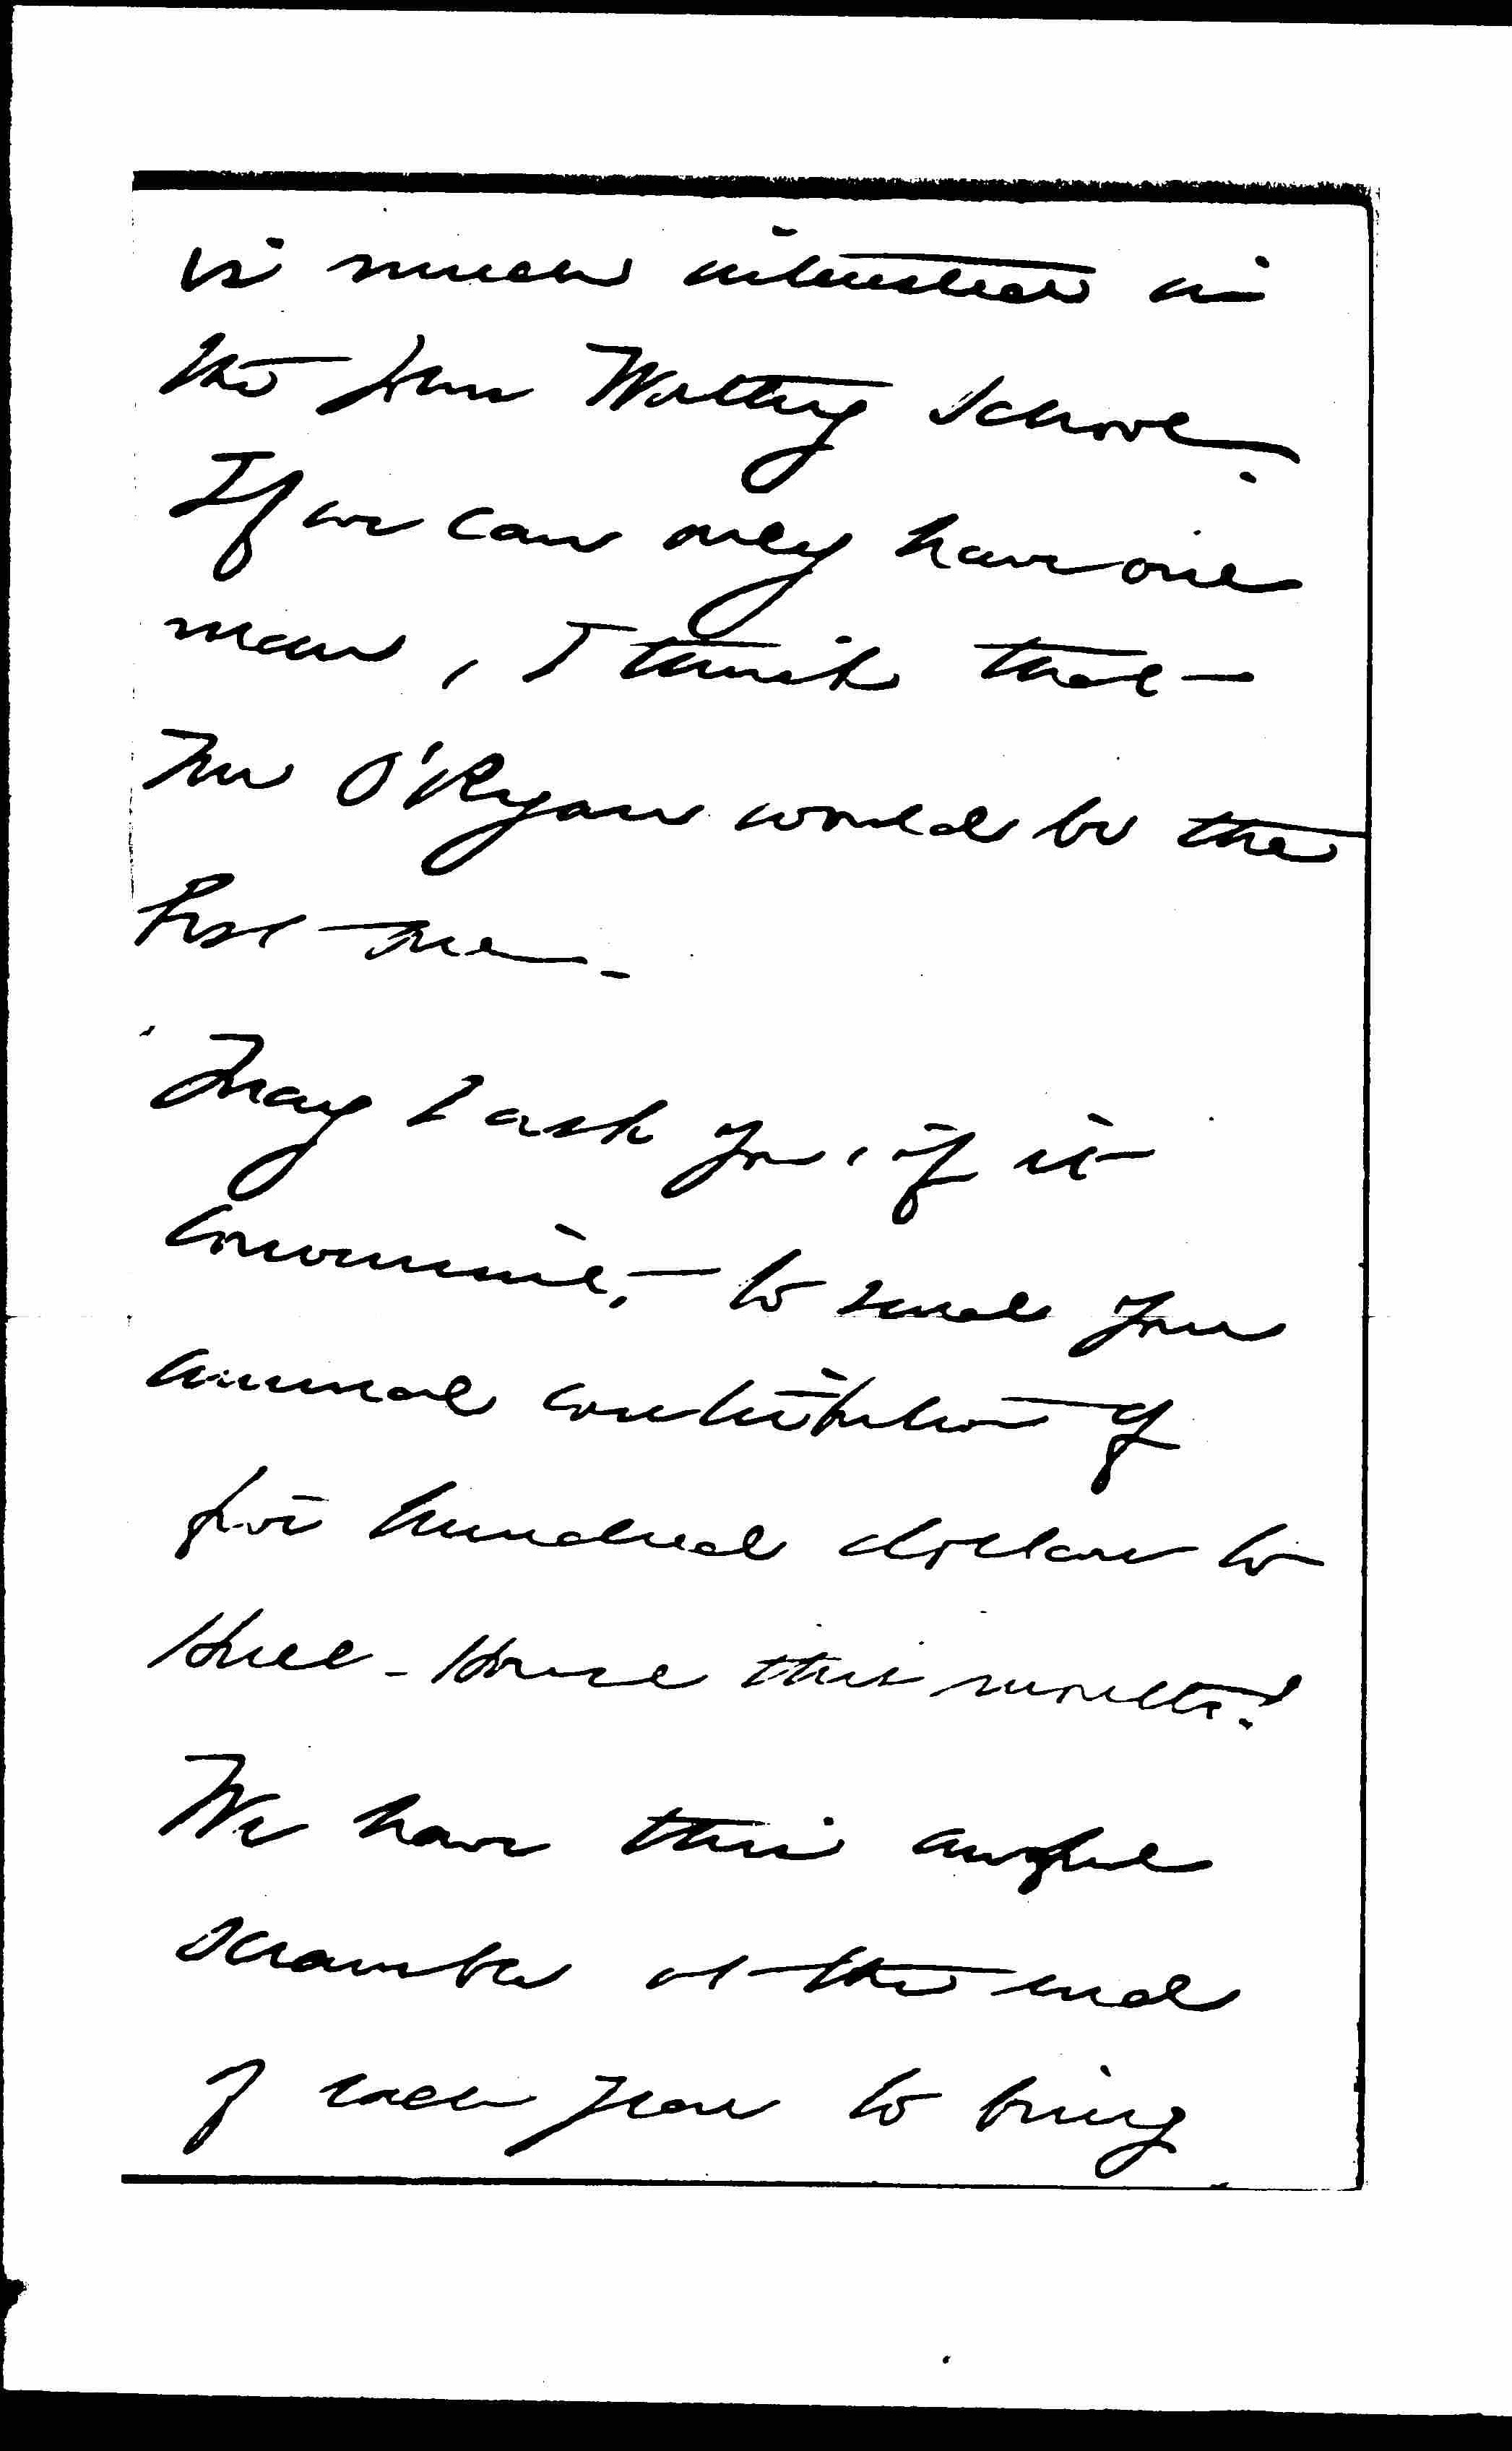 is much interested in
the John Worthy School.
If we can only have one
man, I think that
Mr O'Ryan would be the
best one.
May I ask you, if it
convenient, to send your
annual contribution of
five hundred dollars to
Hull-House this month?
We have this awful
scramble at the end
of each year to bring